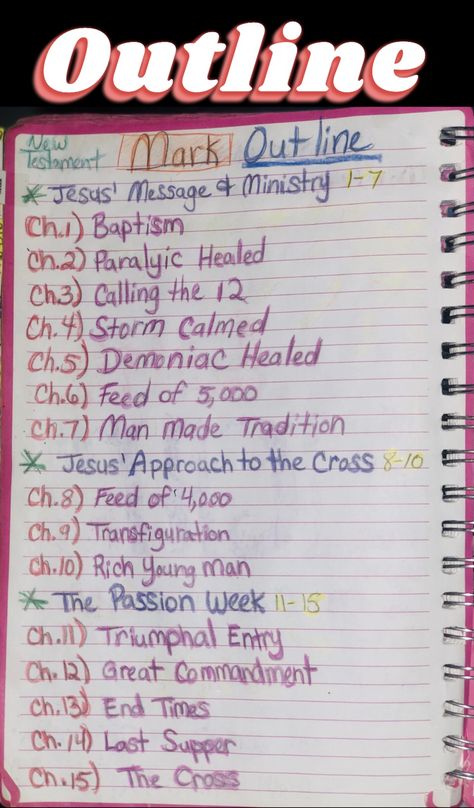 Outline
New
Testament
Mark Outline
* Jesus' Message & Ministry 1-7
Ch.1) Baptism
Ch.2) Paralyic Healed
Ch.3) Calling the 12
Ch.4) Storm Calmed
Ch.5) Demoniac Healed
Ch.6) Feed of 5,000
Ch.7) Man Made Tradition
* Jesus' Approach to the Cross 8-10
Ch.8) Feed of 4,000
Ch.9) Transfiguration
Ch.10) Rich Young Man
* The Passion Week 11-15
Ch.11) Triumphal Entry
Ch.12) Great Commandment
Ch.13) End Times
Ch.14) Last Supper
Ch.15) The Cross